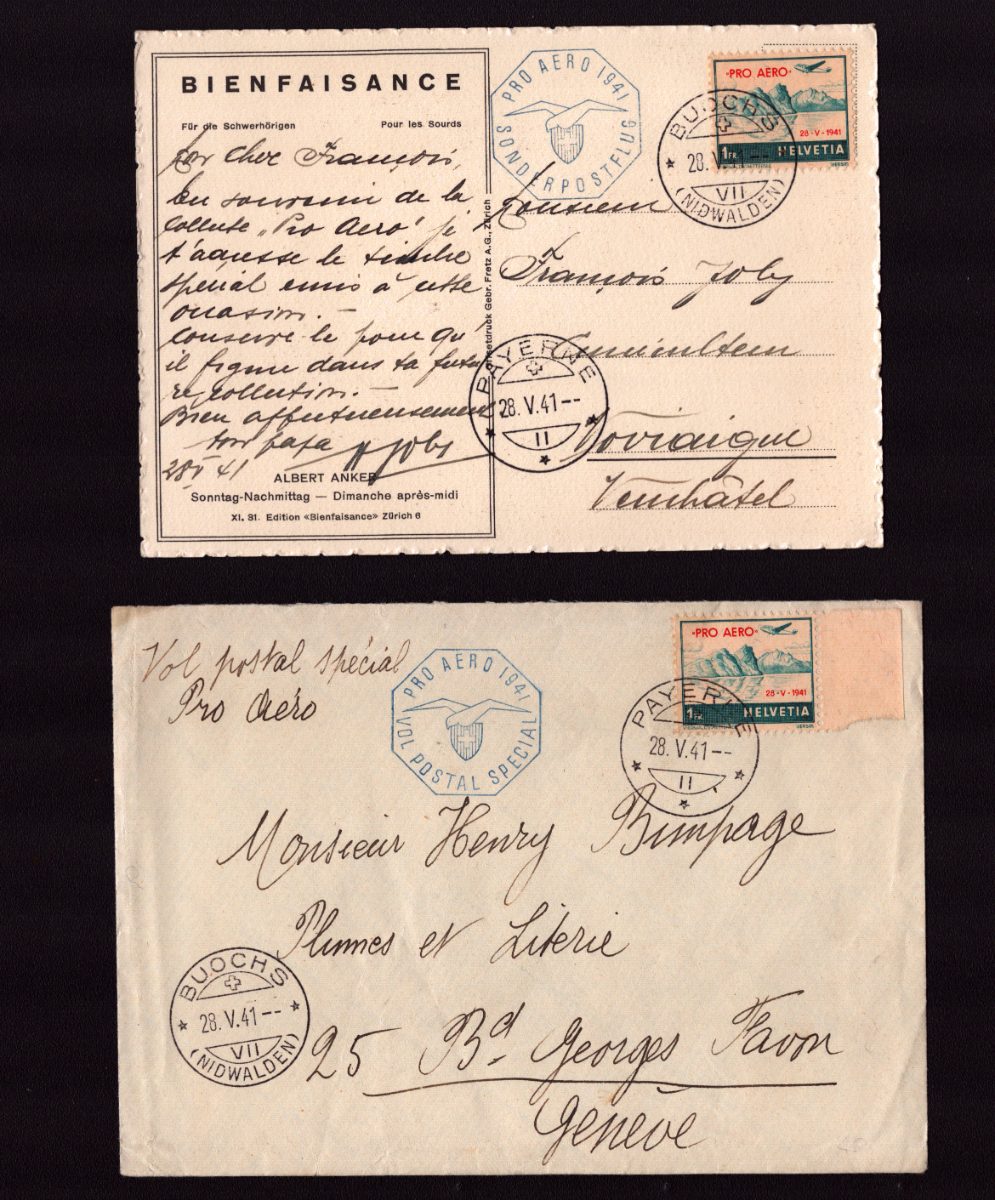 BIENFAISANCE
Für die Schwerhörigen Pour les Sourds
Mon cher François,
En souvenir de la
collecte „Pro Aero" je
t'adresse le timbre
spécial émis à cette
occasion. —
Conserve le pour qu'
il figure dans ta futu
re collection. —
Bien affectueusement
ton papa
28 V 41
ALBERT ANKER
Sonntag-Nachmittag — Dimanche après-midi
XI. 31. Edition «Bienfaisance» Zürich 6
Offsetdruck Gebr. Fretz A.G., Zürich
PRO AERO 1941
SONDERPOSTFLUG
PRO AERO
28-V-1941
1 FR. HELVETIA
BUOCHS
28. V. 41--
VII
(NIDWALDEN)
Monsieur
François Joly
Noiraigue
Neuchâtel
PAYERNE
28. V. 41--
II
Vol postal spécial
Pro Aéro
PRO AERO 1941
VOL POSTAL SPECIAL
PRO AERO
28-V-1941
1 FR. HELVETIA
PAYERNE
28. V. 41--
II
Monsieur Henry Bimpage
Plumes et Literie
25 Bd. Georges Favon
Genève
BUOCHS
28. V. 41--
VII
(NIDWALDEN)